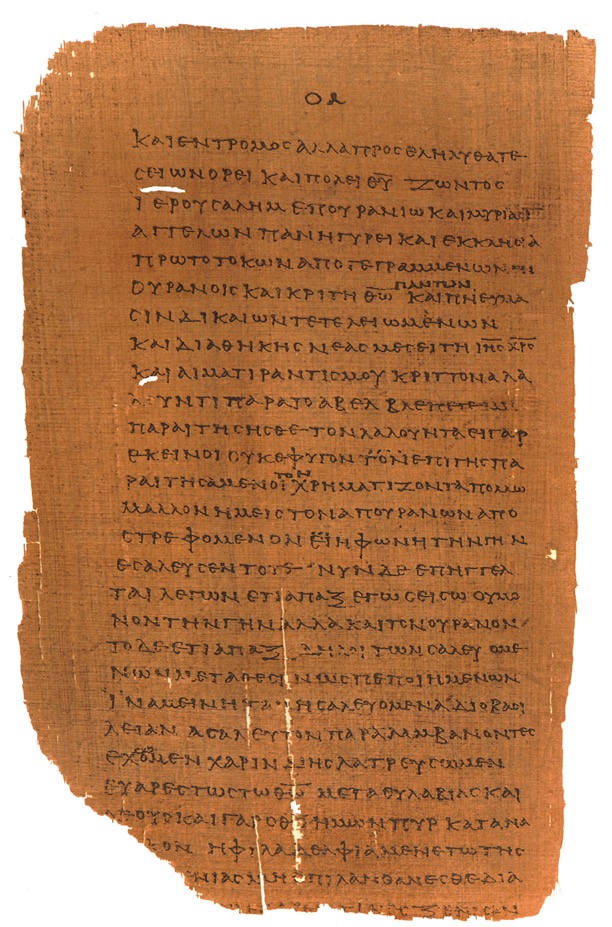 ΟΑ
ΚΑΙΕΝΤΡΟΜΟΣΑΛΛΑΠΡΟΣΕΛΗΛΥΘΑΤΕ
ΣΕΙΩΝΟΡΕΙ ΚΑΙΠΟΛΕΙ Θ̅Υ̅ ΖΩΝΤΟΣ
ΙΕΡΟΥΣΑΛΗΜ ΕΠΟΥΡΑΝΙΩ ΚΑΙΜΥΡΙΑΣΙ̅
ΑΓΓΕΛΩΝ ΠΑΝΗΓΥΡΕΙ ΚΑΙ ΕΚΚΛΗΣΙΑ
ΠΡΩΤΟΤΟΚΩΝ ΑΠΟΓΕΓΡΑΜΜΕΝΩΝ
ΟΥΡΑΝΟΙΣ ΚΑΙ ΚΡΙΤΗ Θ̅Ω̅ ΠΑΝΤΩΝ ΚΑΙ ΠΝΕΥΜΑ
ΣΙΝ ΔΙΚΑΙΩΝ ΤΕΤΕΛΕΙΩΜΕΝΩΝ
ΚΑΙ ΔΙΑΘΗΚΗΣ ΝΕΑΣ ΜΕΣΕΙΤΗ Ι̅Η̅Σ̅ Χ̅Ρ̅Σ̅
ΚΑΙ ΑΙΜΑΤΙ ΡΑΝΤΙΣΜΟΥ ΚΡΙΤΤΟΝ ΑΛΑ
ΛΟΥΝΤΙ ΠΑΡΑ ΤΟ ΑΒΕΛ ΒΛΕΠΕΤΕ ΜΗ
ΠΑΡΑΙΤΗΣΗΣΘΕ ΤΟΝ ΛΑΛΟΥΝΤΑ ΕΙ ΓΑΡ
ΕΚΕΙΝΟΙ ΟΥΚ ΕΦΥΓΟΝ ΤΟΝ ΕΠΙ ΓΗΣ ΠΑ
ΡΑΙΤΗΣΑΜΕΝΟΙ ΤΟΝ ΧΡΗΜΑΤΙΖΟΝΤΑ ΠΟΛΛΩ
ΜΑΛΛΟΝ ΗΜΕΙΣ ΤΟΝ ΑΠ ΟΥΡΑΝΩΝ ΑΠΟ
ΣΤΡΕΦΟΜΕΝΟΙ ΕΙ Η ΦΩΝΗ ΤΗΝ ΓΗΝ
ΕΣΑΛΕΥΣΕΝ ΤΟΤΕ ΝΥΝ ΔΕ ΕΠΗΓΓΕΛ
ΤΑΙ ΛΕΓΩΝ ΕΤΙ ΑΠΑΞ ΕΓΩ ΣΕΙΣΩ ΟΥ ΜΟ
ΝΟΝ ΤΗΝ ΓΗΝ ΑΛΛΑ ΚΑΙ ΤΟΝ ΟΥΡΑΝΟΝ
ΤΟ ΔΕ ΕΤΙ ΑΠΑΞ ΔΗΛΟΙ ΤΩΝ ΣΑΛΕΥΟΜΕ
ΝΩΝ ΜΕΤΑΘΕΣΙΝ ΩΣ ΠΕΠΟΙΗΜΕΝΩΝ
ΙΝΑ ΜΕΙΝΗ ΤΑ ΜΗ ΣΑΛΕΥΟΜΕΝΑ ΔΙΟ ΒΑΣΙ
ΛΕΙΑΝ ΑΣΑΛΕΥΤΟΝ ΠΑΡΑΛΑΜΒΑΝΟΝΤΕΣ
ΕΧΩΜΕΝ ΧΑΡΙΝ ΔΙ ΗΣ ΛΑΤΡΕΥΣΩΜΕΝ
ΕΥΑΡΕΣΤΩΣ ΤΩ Θ̅Ω̅ ΜΕΤΑ ΕΥΛΑΒΙΑΣ ΚΑΙ
ΔΕΟΥΣ ΚΑΙ ΓΑΡ Ο Θ̅Σ̅ ΗΜΩΝ ΠΥΡ ΚΑΤΑΝΑ
ΚΟΝ Η ΦΙΛΑΔΕΛΦΙΑ ΜΕΝΕΤΩ ΤΗΣ
ΕΝΙΑΣ ΜΗ ΕΠΙΛΑΝΘΑΝΕΣΘΕ ΔΙΑ